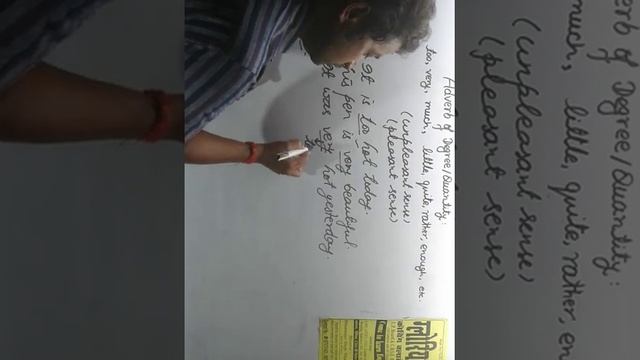 Adverb of Degree/Quantity:
too, very, much, little, quite, rather, enough, etc.
(unpleasant sense)
(pleasant sense)
It is too hot today.
his pen is very beautiful.
t was very hot yesterday.
ग्लोरिय
कोचिंग
of Degree/Quantity:
much, little, quite, rather, en
(unpleasant sense)
(pleasant sense)